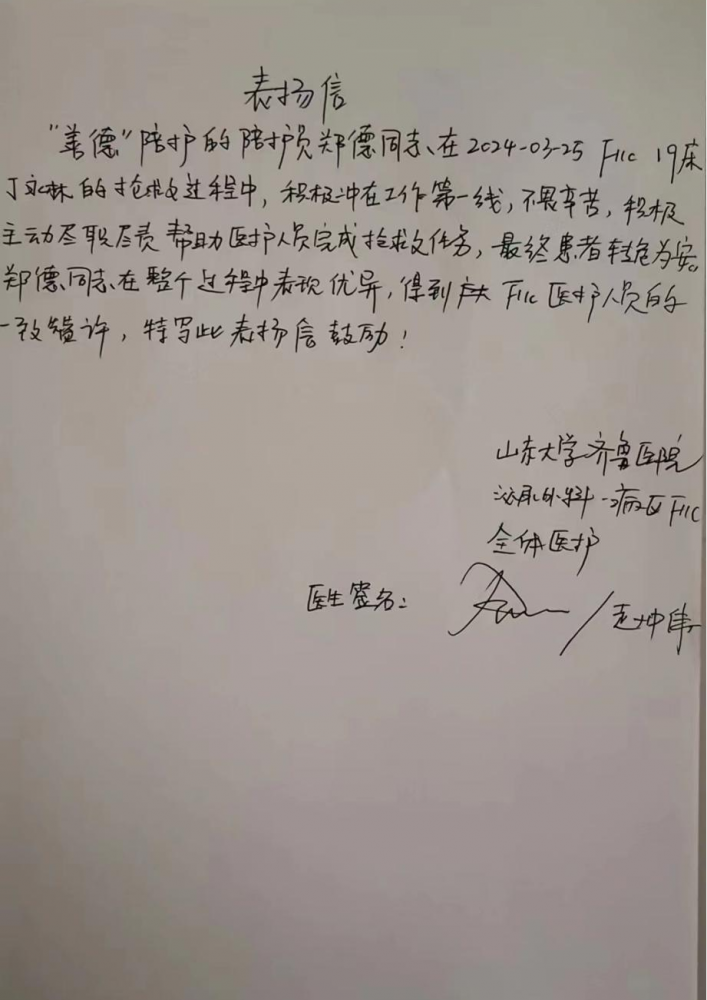 表扬信
"善德"陪护的陪护员郑德同志、在2024-03-25 F11C 19床
丁永林的抢救过程中，积极冲在工作第一线，不畏辛苦，积极
主动尽职尽责帮助医护人员完成抢救任务，最终患者转危为安。
郑德同志在整个过程中表现优异，得到广大F11C医护人员的
一致赞许，特写此表扬信鼓励！
山东大学齐鲁医院
泌尿外科一病区F11C
全体医护
医生签名：